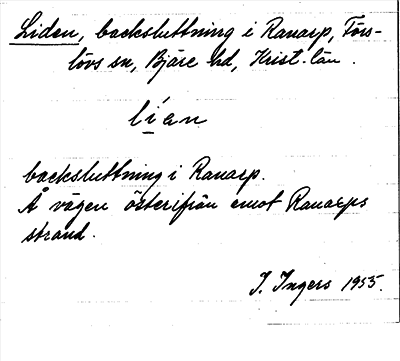 Liden, backsluttning i Ranarp, Förs-
lövs sn, Bjäre hd, Krist. län.
líen
backsluttning i Ranarp.
Å vägen österifrån emot Ranarps
strand.
I. Ingers 1955.